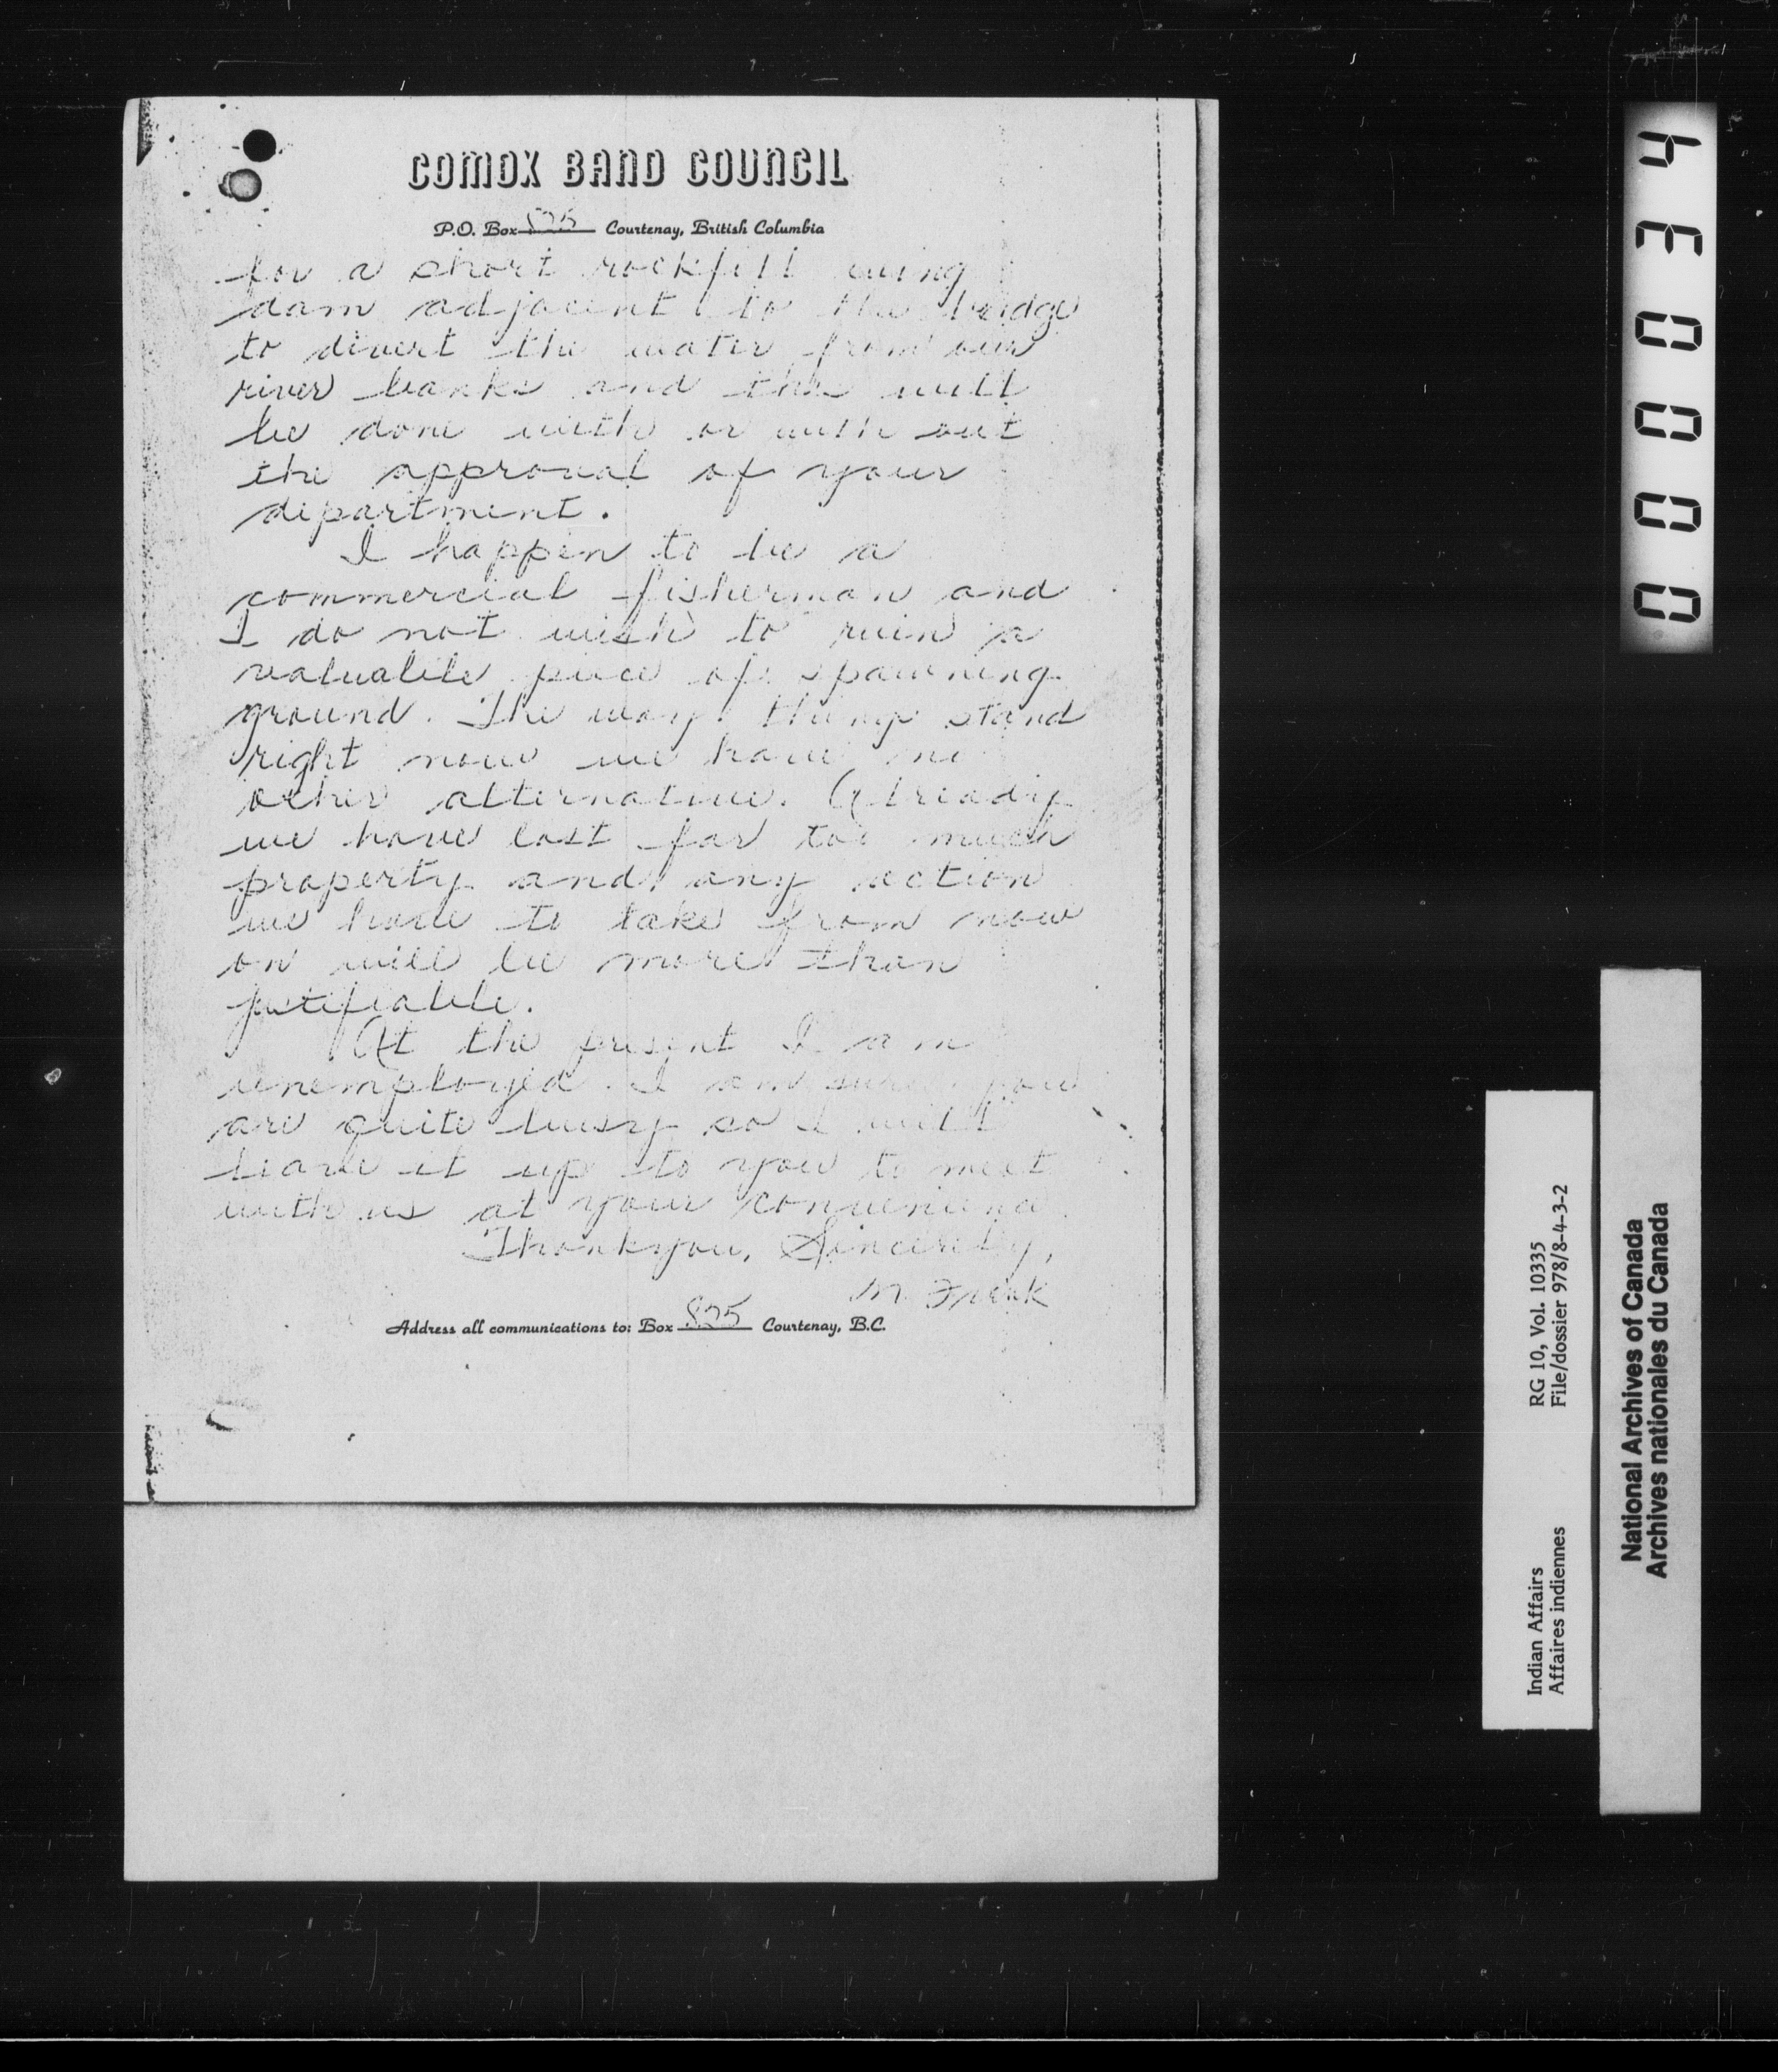 COMOX BAND COUNCIL
P.O. Box 825 Courtenay, British Columbia
for a short rockfill wing
dam adjacent to the bridge
to divert the water from our
river banks and this will
be done with or with out
the approval of your
department.
I happen to be a
commercial fisherman and
I do not wish to ruin a
valuable piece of spawning
ground. The way things stand
right now we have no
other alternative. Already
we have lost far too much
property and any action
we have to take from now
on will be more than
justifiable.
At the present I am
unemployed. I am sure you
are quite busy so I will
leave it up to you to meet
with us at your convenience.
Thankyou, Sincerely,
M. Frank
Address all communications to: Box 825 Courtenay, B.C.
000034
Indian Affairs RG 10, Vol. 10335
Affaires indiennes File/dossier 978/8-4-3-2
National Archives of Canada
Archives nationales du Canada